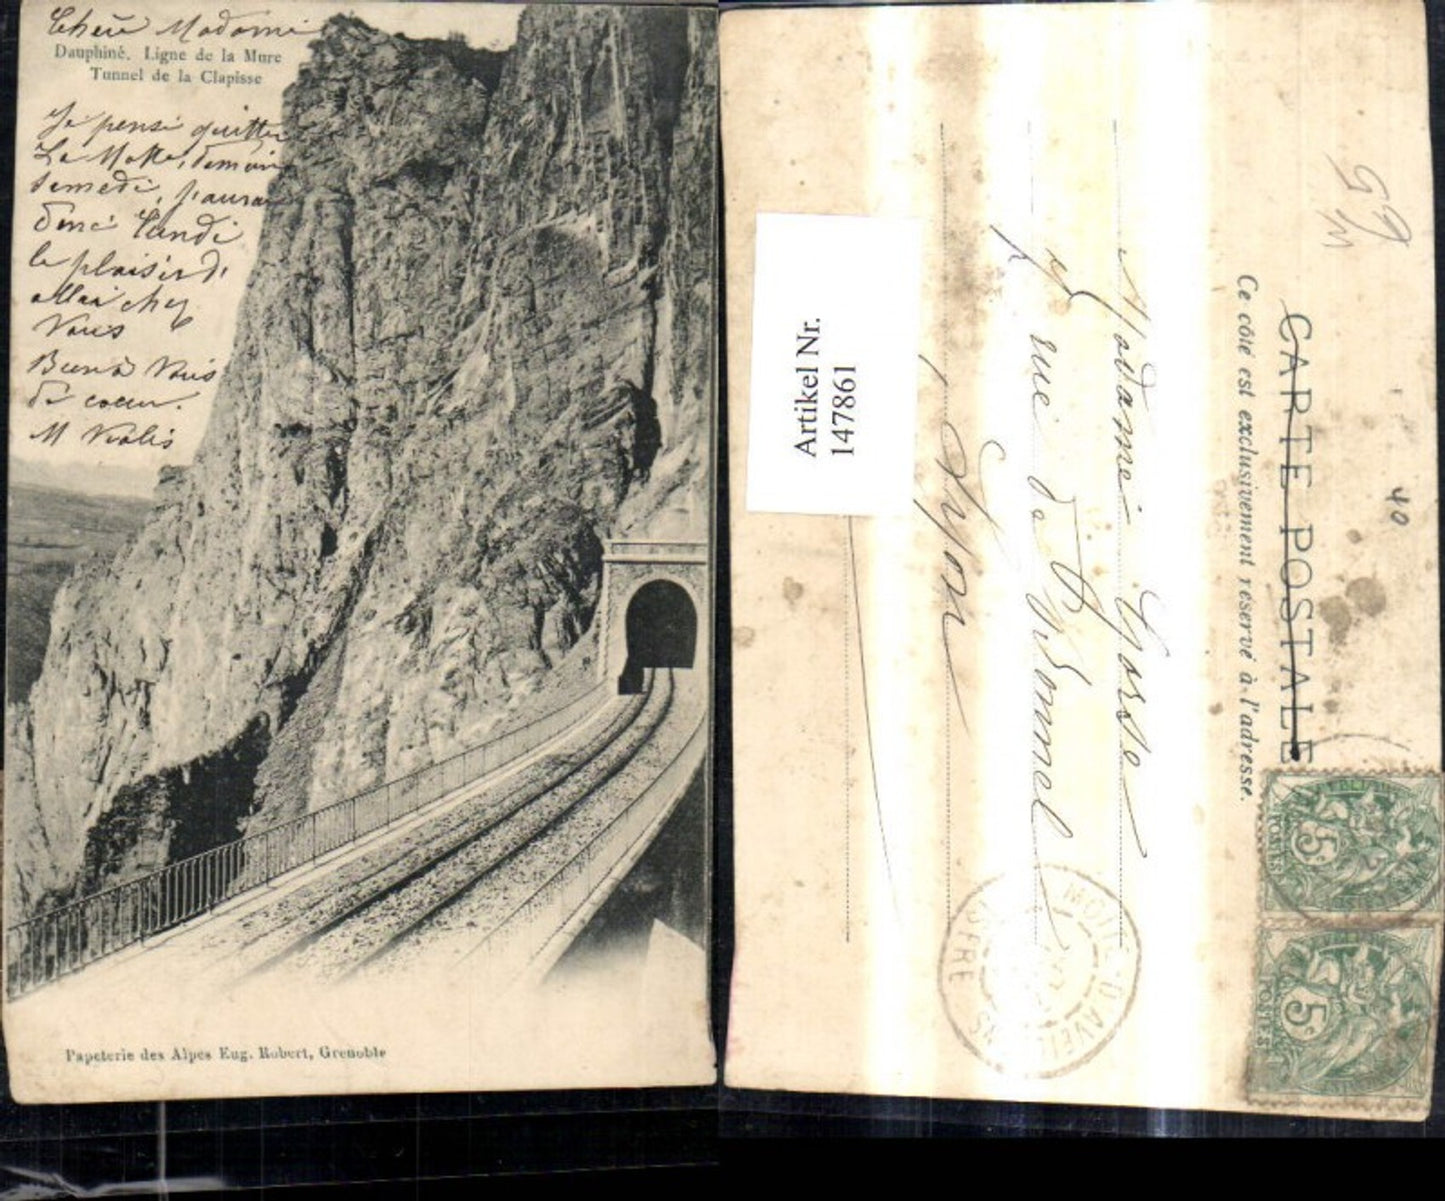 Chère Madame
Dauphiné. Ligne de la Mure
Tunnel de la Clapisse
Je pense quitter
La Motte, demain
samedi, j'aurai
donc lundi
le plaisir d'
aller chez
Vous
Bien à Vous
de coeur.
M
Papeterie des Alpes Eug. Robert, Grenoble
CARTE POSTALE
Ce côté est exclusivement réservé à l'adresse.
Madame Gorsse
rue de
Lyon
Artikel Nr.
147861
MOTTE D'AVEIL
ISÈRE
5c
POSTES
5c
POSTES
40